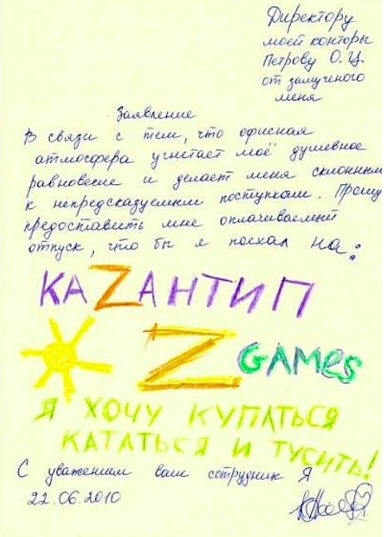 Директору
моей конторы
Петрову О.Ц.
от замученого
меня
Заявление
В связи с тем, что офисная
атмосфера угнетает моё душевное
равновесие и делает меня склонным
к непредсказуемым поступкам. Прошу
предоставить мне оплачиваемый
отпуск, что бы я поехал на:
КАZАНТИП
Z GAMES
Я ХОЧУ КУПАТЬСЯ
КАТАТЬСЯ И ТУСИТЬ!
С уважением ваш сотрудник Я
22.06.2010